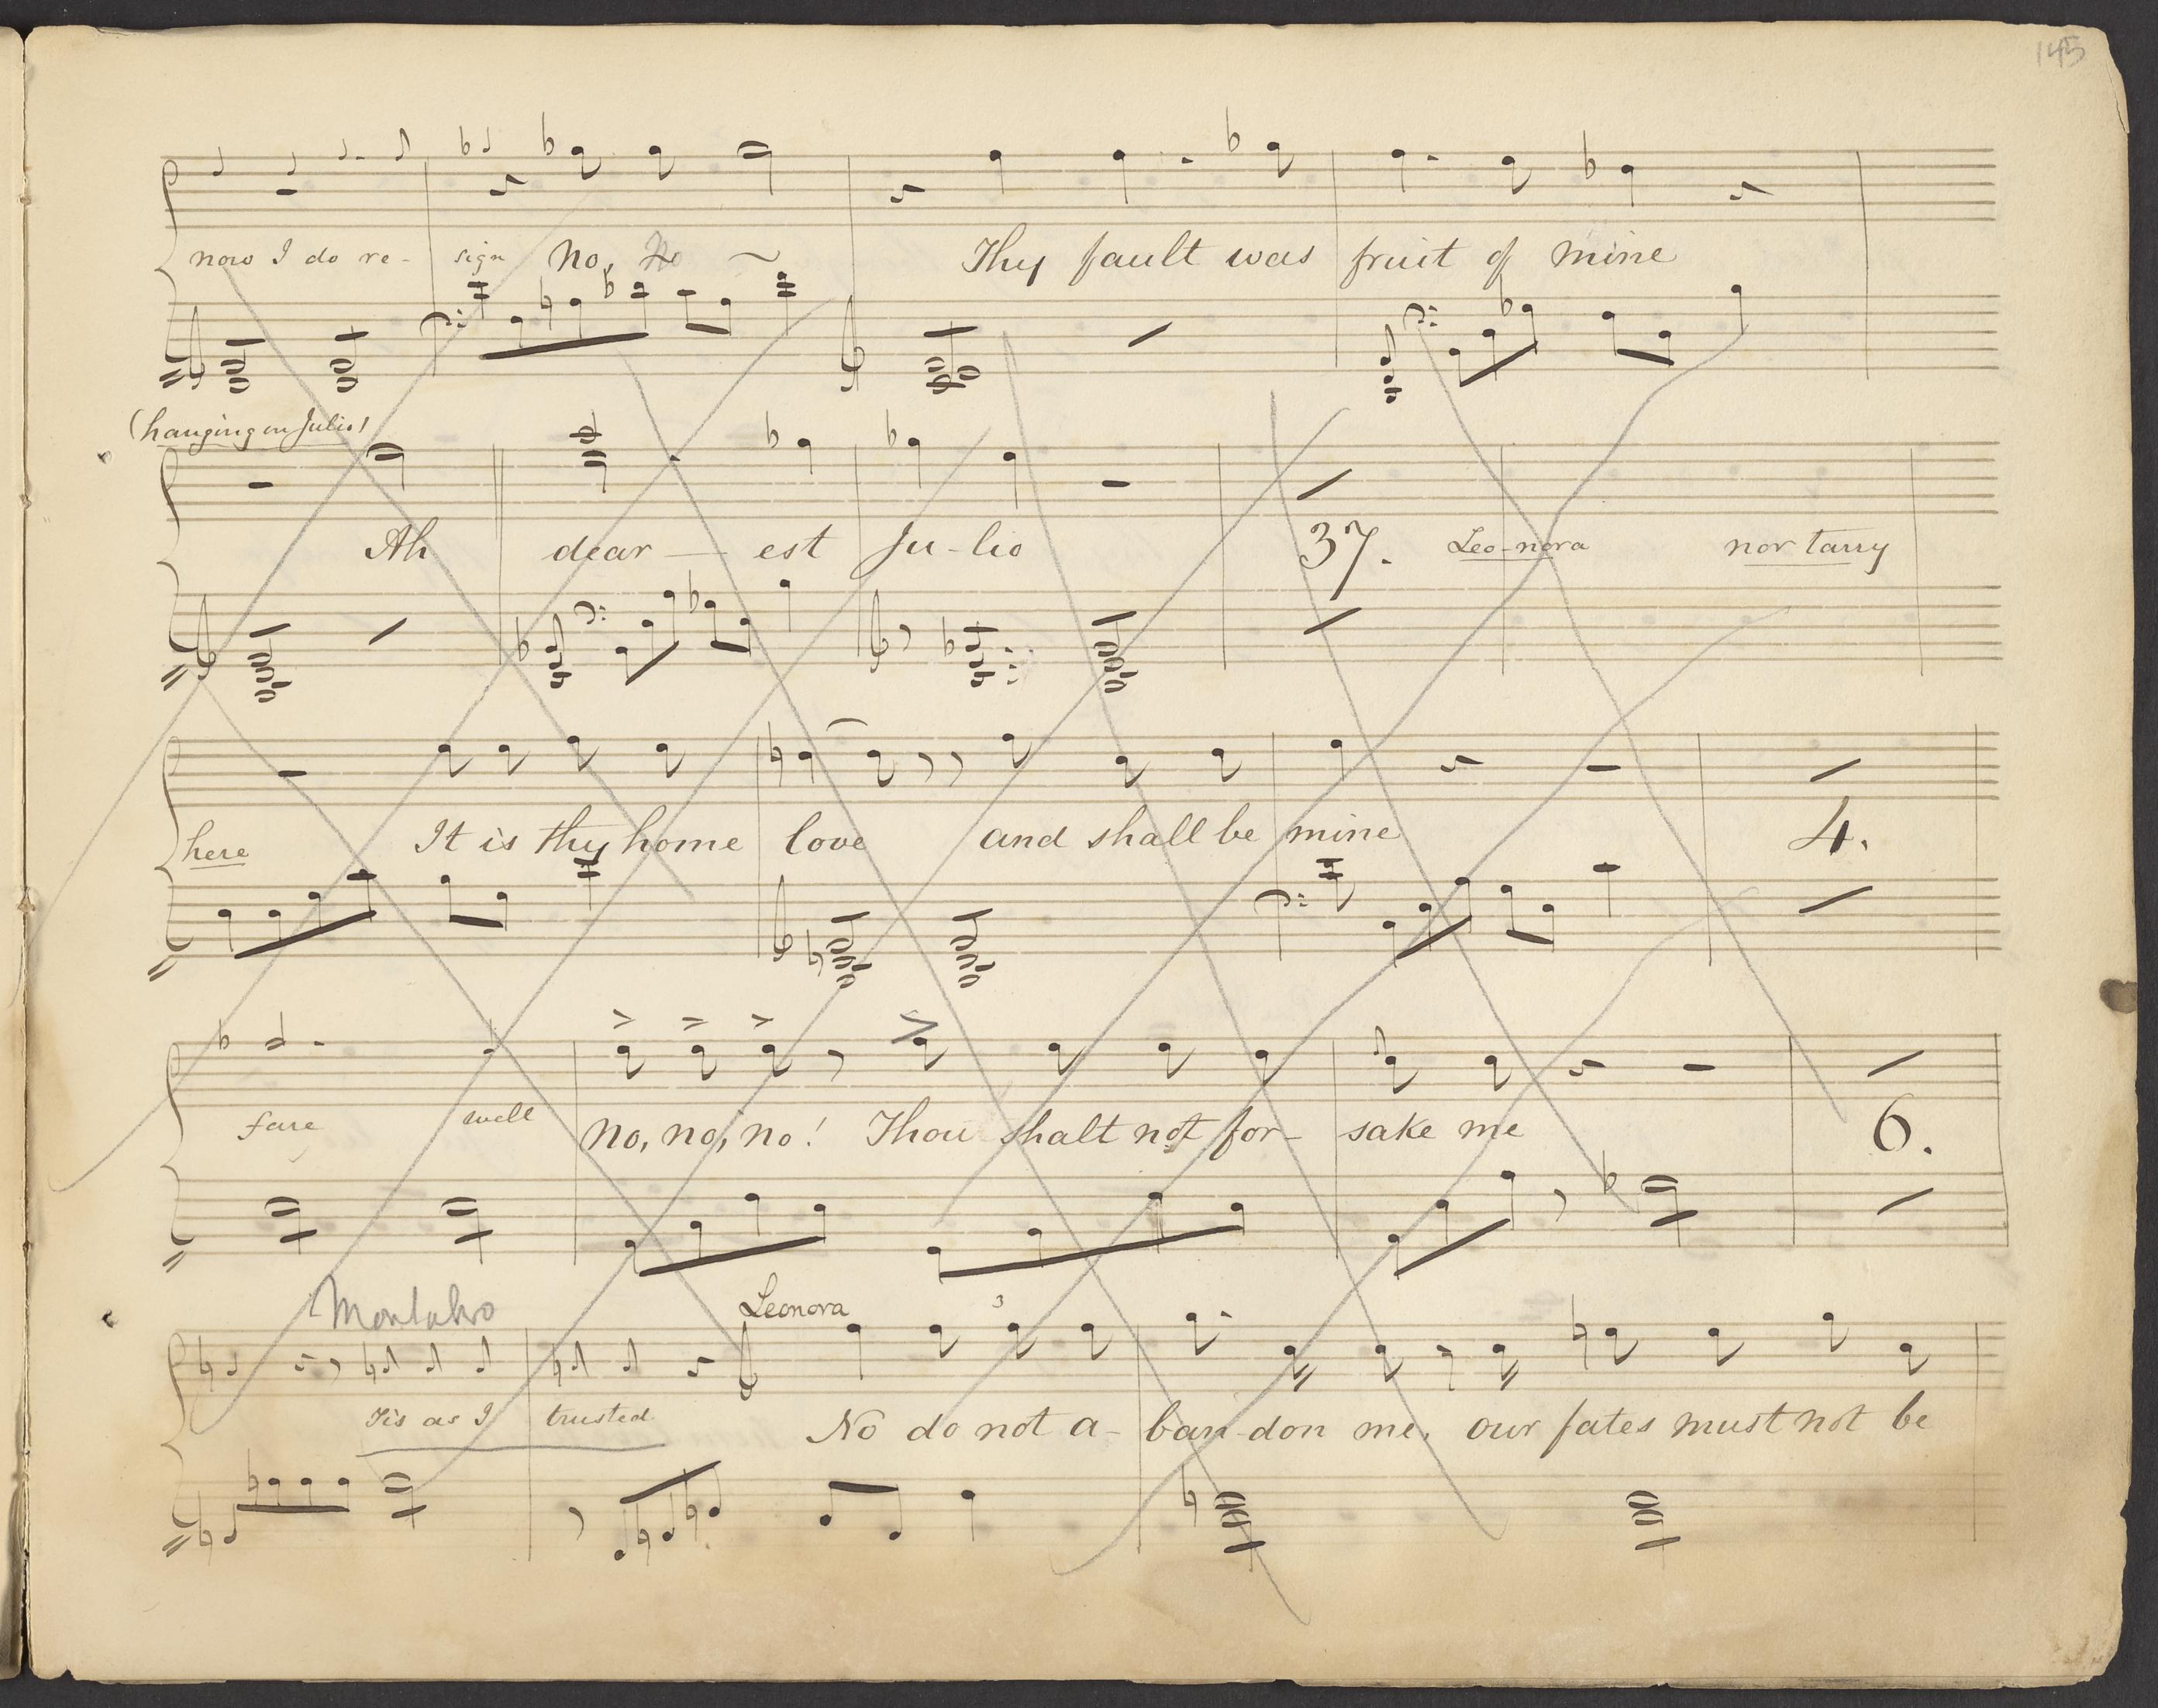 145
now I do re- sign No, No Thy fault was fruit of mine
(hanging on Julio)
Ah dear — est Ju-lio 37. Leo-nora nor tarry
here It is thy home love and shall be mine 4.
fare well No, no, no! Thou shalt not for- sake me 6.
Leonora 3
Tis as I trusted No do not a- ban-don me, our fates must not be